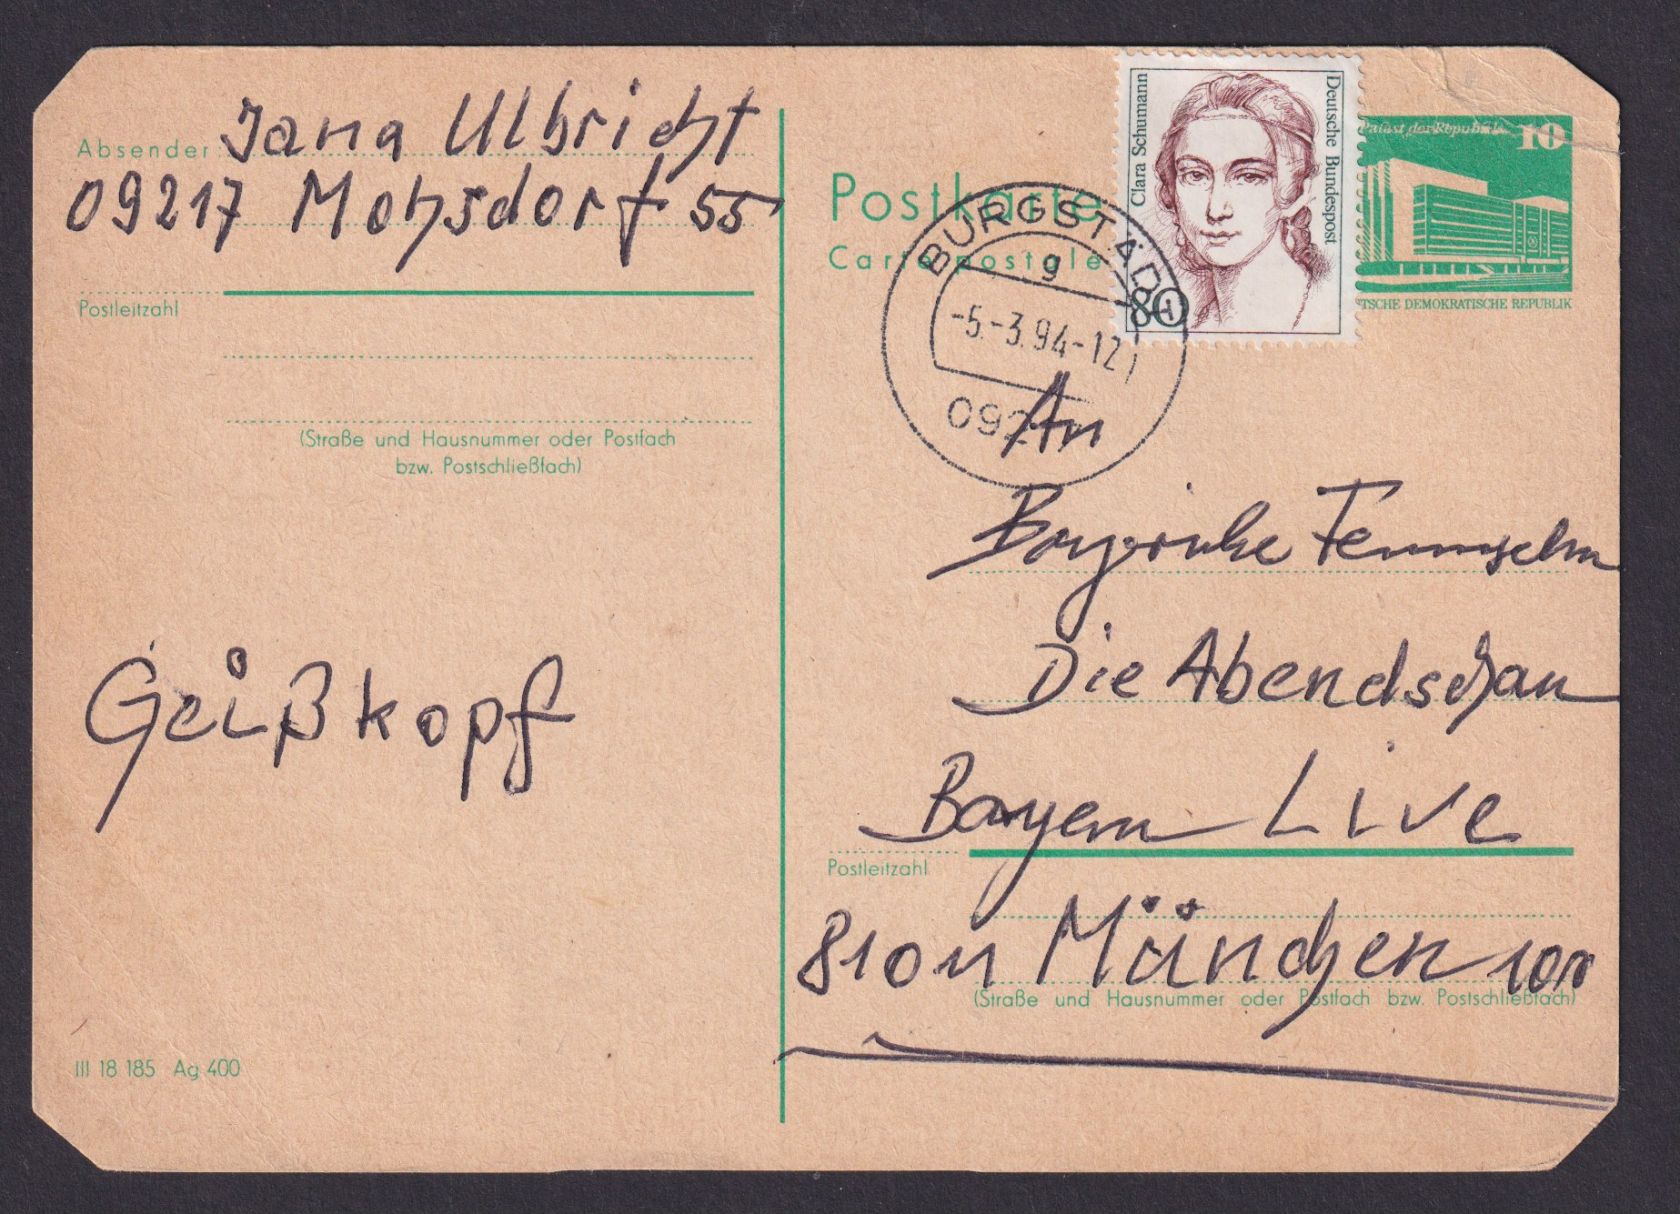 Absender Jana Ulbricht
09217 Mohsdorf 55
Postleitzahl
(Straße und Hausnummer oder Postfach
bzw. Postschließfach)
Geißkopf
III 18 185 Ag 400
Postkarte
Carte postale
BURGSTÄDT
g
-5.-3.94-12
092
Clara Schumann
Deutsche Bundespost
80
Palast der Republik
10
TSCHE DEMOKRATISCHE REPUBLIK
An
Die Abendschau
Bayern Live
Postleitzahl
München
(Straße und Hausnummer oder Postfach bzw. Postschließfach)